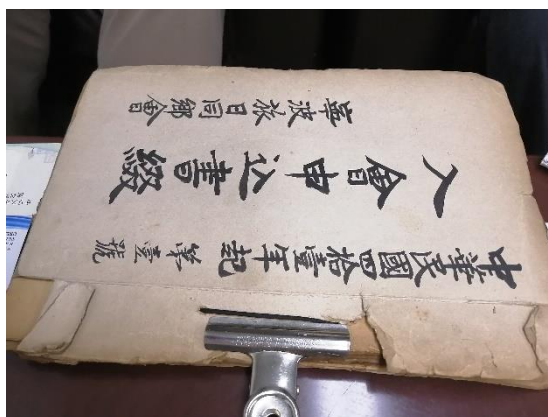 中華民國四拾壹年起 第壹號
入會申込書綴
寧波旅日同鄉會